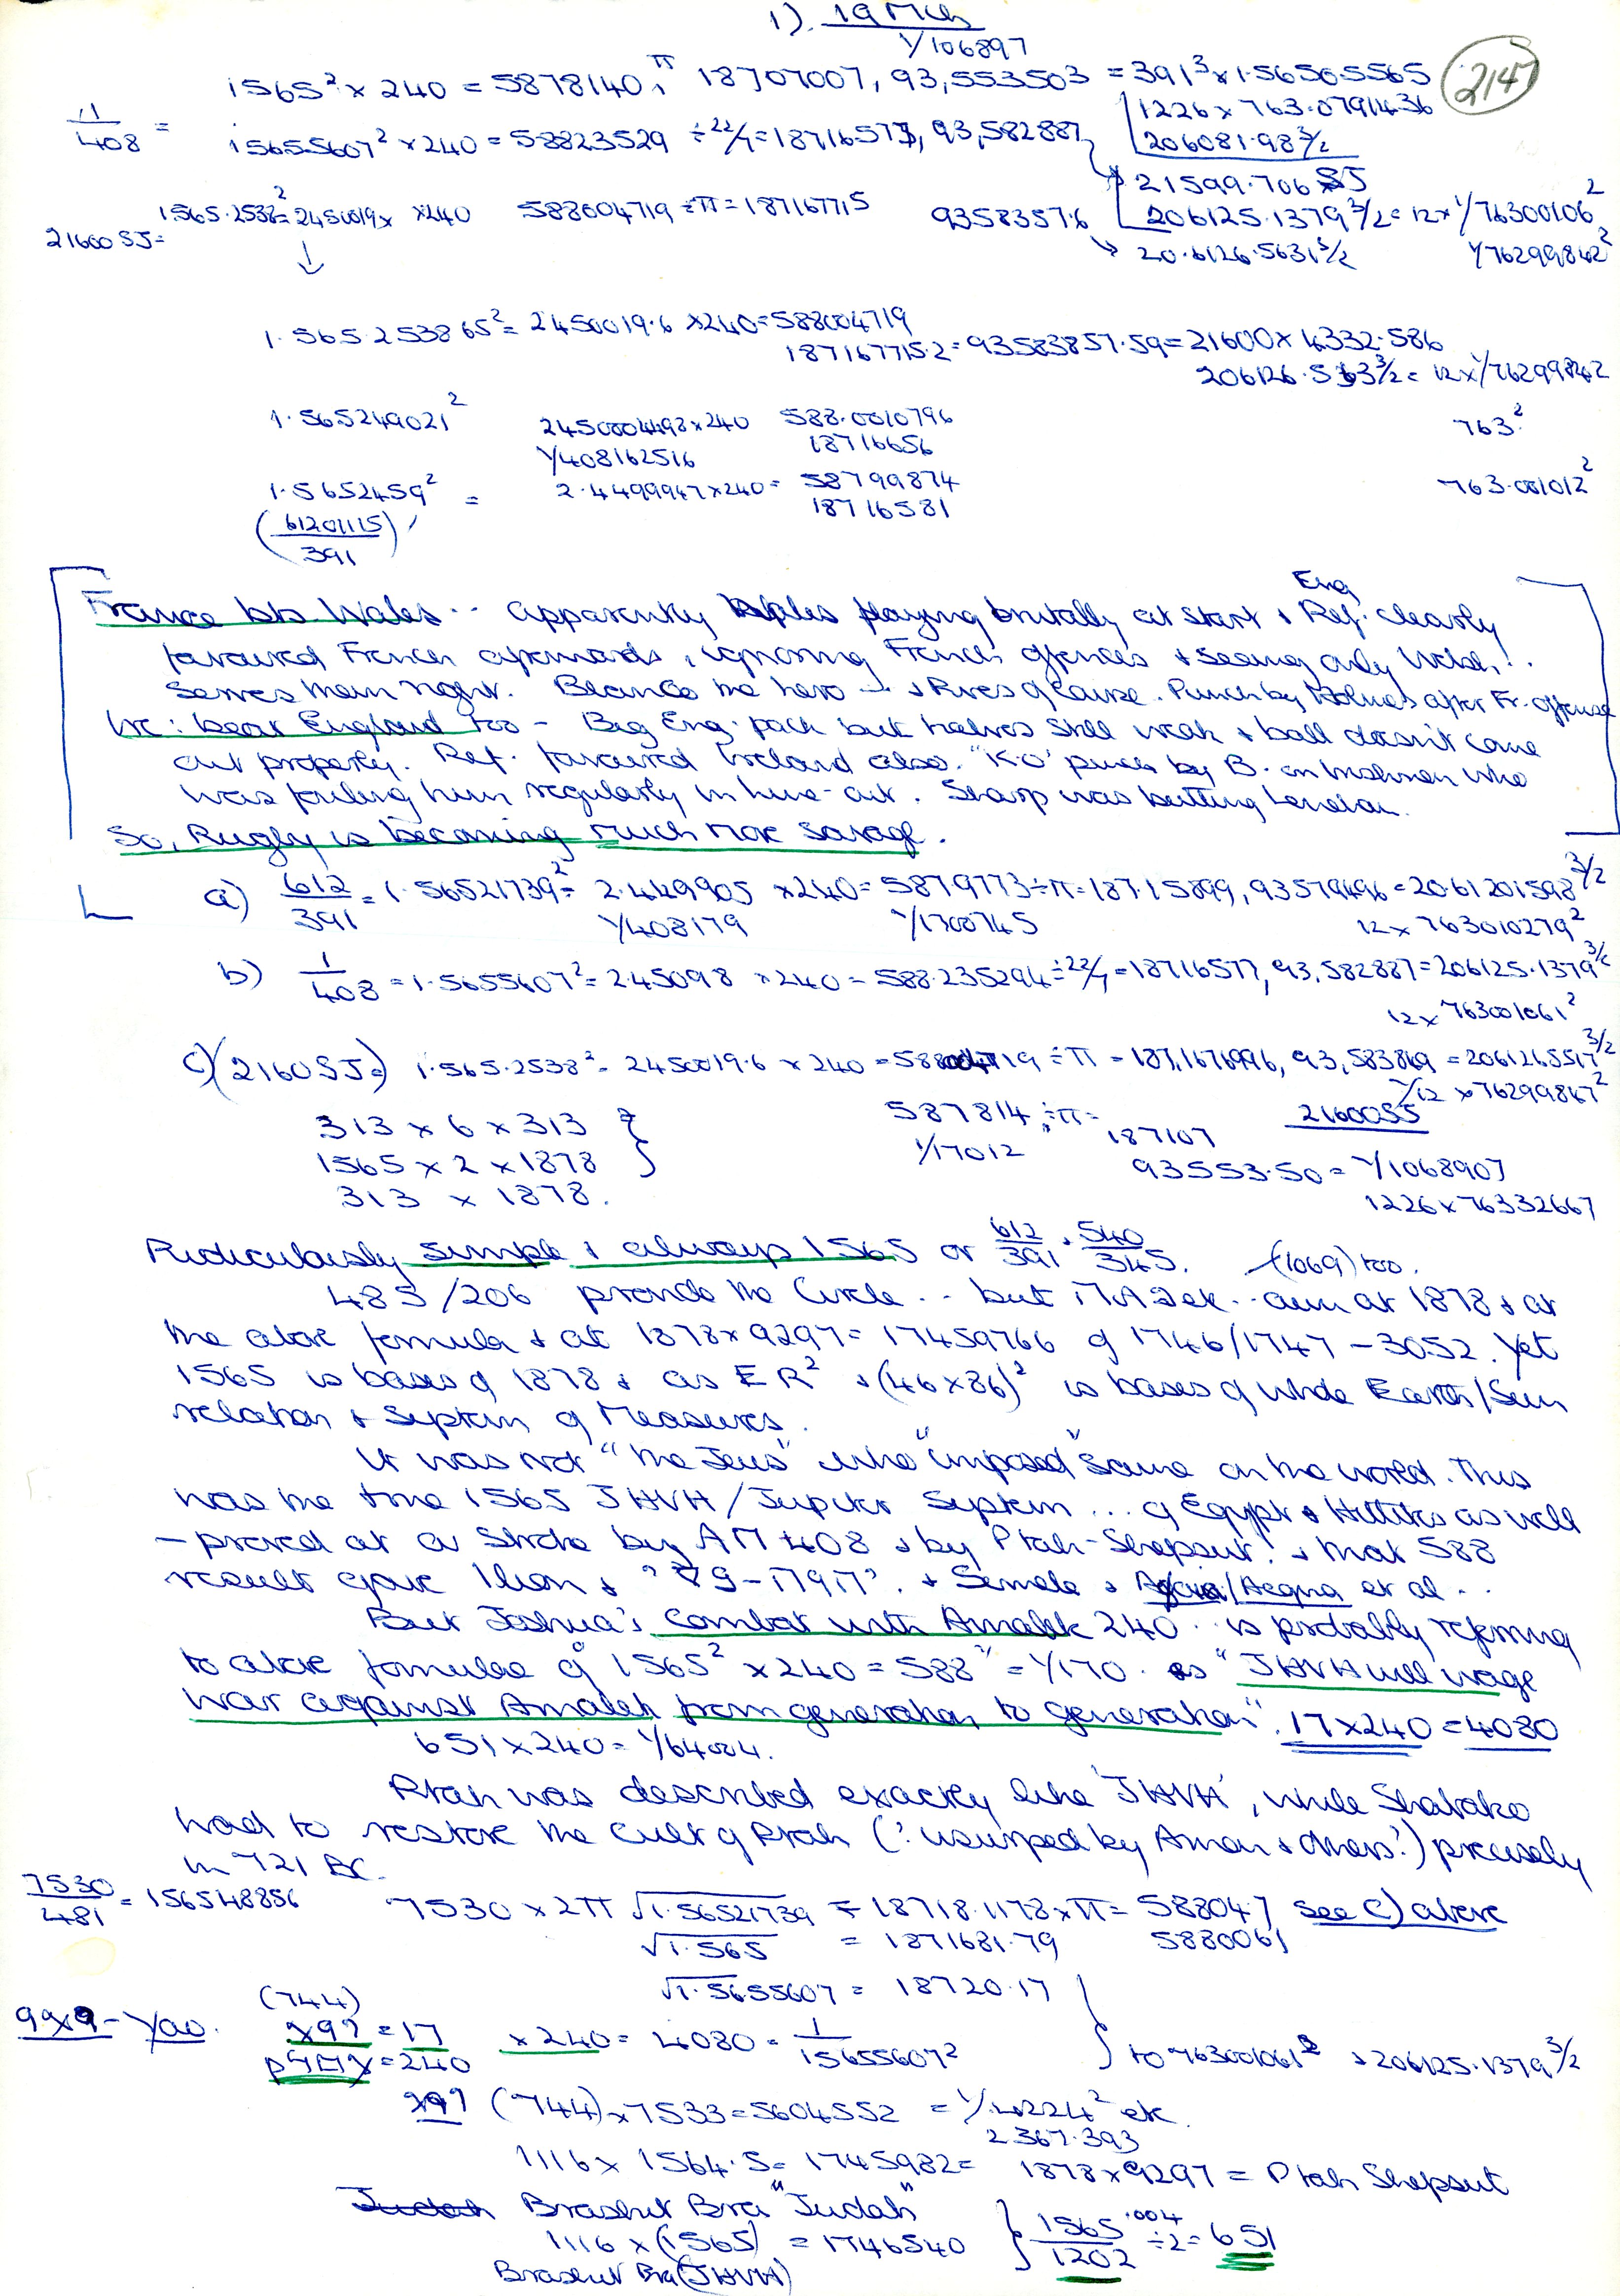 1). 19 Mch
1/106897
1565² × 240 = 5878140, π 18707007, 93,553503 = 391³ × 1.56505565
2147
1226 × 763.07911436
11/408 = 15655607² × 240 = 58823529 ÷ 22/7 = 18716577, 93,582887
206081.98 3/2
21599.706 SJ
21600 SJ = 1565.2538² = 2450019 × ×240 588004719 ÷ π = 187167715 93583576
206125.1379 3/2 = 12 × 1/76300106²
20.6126.5631 3/2 1/76299842²
1.565.253865² = 2450019.6 × 240 = 588004719
187167715.2 = 93583857.59 = 21600 × 4332.586
206126.563 3/2 = 12 × 1/76299842
1.565249021² 2450004498 × 240 588.0010796 763²
1/408162516 18716656
1.5652459² = 2.4499947 × 240 = 58799874 763.001012²
(61201115/391) 18716581
France bts Wales .. apparently Wales playing brutally at start & Eng Ref. clearly
favoured French afterwards, ignoring French offences & seeing only Welsh!.
Serves them right. Blanco the hero & Rives of course. Punch by Holmes after Fr. offense
Ire: beat England too - Big Eng. pack but halves still weak & ball doesn't come
out properly. Ref. favoured Ireland also. "K.O" punch by B. on Irishman who
was fouling him regularly in line-out. Sharp was butting Lenihan.
So, Rugby is becoming much more savage.
a) 612/391 = 1.56521739² = 2.449905 × 240 = 5879773 ÷ π = 187.15899, 93579496 = 20.61201598 3/2
1/408179 1/1700745 12 × 763010279²
b) 1/408 = 1.5655607² = 2.45098 × 240 = 588.235294 ÷ 22/7 = 18716577, 93,582887 = 206125.1379 3/2
12 × 763001061²
c) (2160 SJ =) 1.565.2538² = 2450019.6 × 240 = 588004719 ÷ π = 187,1676996, 93,583869 = 2061265517 3/2
1/12 × 76299847²
313 × 6 × 313 587814 ÷ π = 187107 2160055
1565 × 2 × 1878 1/17012 93553.50 = 1/1068907
313 × 1878. 1226 × 76332667
Ridiculously simple & always 1565 or 612/391, 540/345. (1069) too.
485/206 provide the Circle .. but etc .. aim at 1878 & at
the above formula & at 1878 × 9297 = 17459766 of 1746/1747 - 3052. Yet
1565 is bases of 1878 & as ER² & (46×86)² is bases of whole Earth/Sun
relation & System of Measures.
It was not "the Jews" who "imposed" same on the world. This
was the true 1565 JHVH/Jupiter System ... of Egypt & Hittites as well
- proved at a stroke by AM 408 & by Ptah-Shepsut! & that 588
result gave & Semele & /Aegna et al ..
But Joshua's combat with Amalek 240 .. is probably referring
to above formulae of 1565² × 240 = 588" = 1/170. as "JHVH will wage
war against Amalek from generation to generation". 17 × 240 = 4080
651 × 240 = 1/64004.
Ptah was described exactly like 'JHVH', while Shabako
had to restore the Cult of Ptah (? usurped by Amen & others?) precisely
in 721 BC.
7530/481 = 156548856 7530 × 2π √1.56521739 = 18718.1178 × π = 588047 see C) above
√1.565 = 1871681.79 5880061
√1.5655607 = 18720.17
9×9 - Yao. (744)
= 17 × 240 = 4080 = 1/15655607² to 763001061² & 206125.1379 3/2
= 240
(744) × 7533 = 5604552 = 1/.4224² etc.
2367.393
1116 × 1564.5 = 1745982 = 1878 × 9297 = Ptah Shepsut
Judah Brashit Bra "Judah"
1116 × (1565) = 1746540 1565.004/1202 ÷ 2 = 651
Brashit Bra (JHVH)